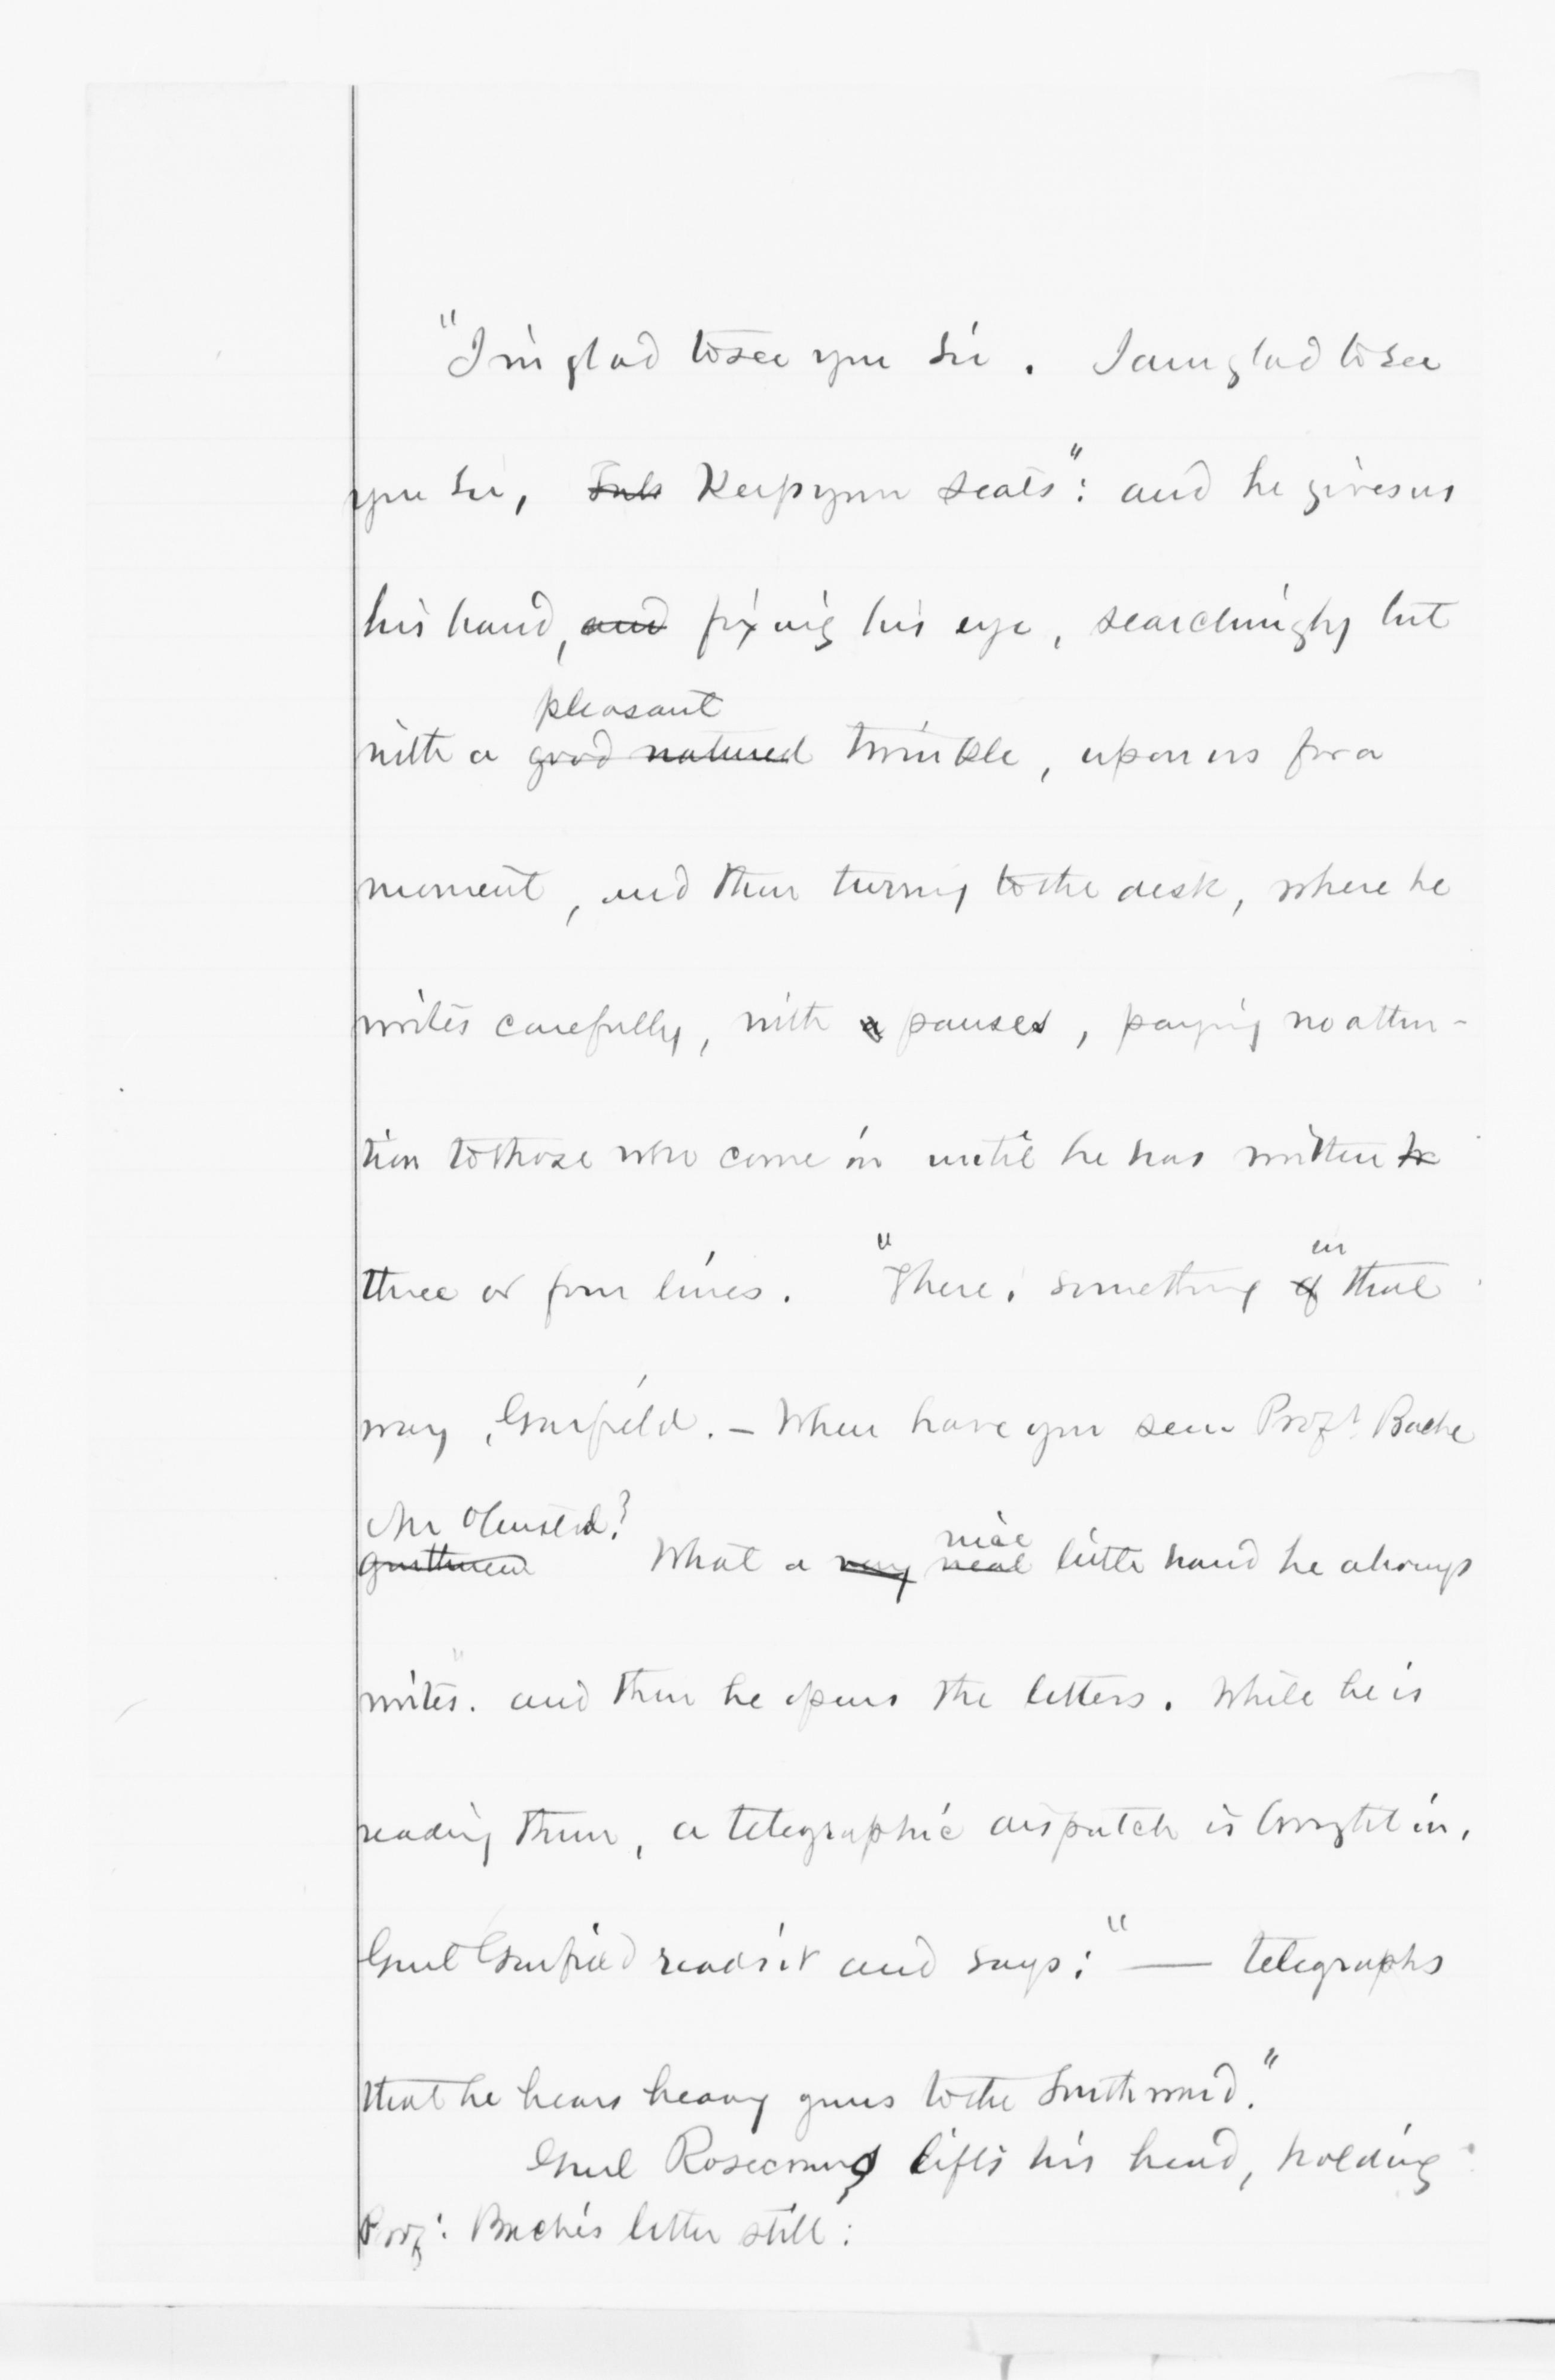 "I'm glad to see you sir. I am glad to see
you sir, Keep your seats": and he gives us
his hand, and fixing his eye, searchingly but
pleasant
with a good natured twinkle, upon us for a
moment, and then turning to the desk, where he
writes carefully, with a pauses, paying no atten-
tion to those who come in until he has written
three or four lines. "There, something of that
in
way, Garfield. — When have you seen Prof. Bache
Mr Olmsted?
gentlemen What a very neat little hand he always
nice
writes". and then he opens the letters. While he is
reading them, a telegraphic dispatch is brought in,
Genl Garfield reads it and says: " — telegraphs
that he hears heavy guns to the Southward."
Genl Rosecrans lifts his head, holding
Prof: Bache's letter still: